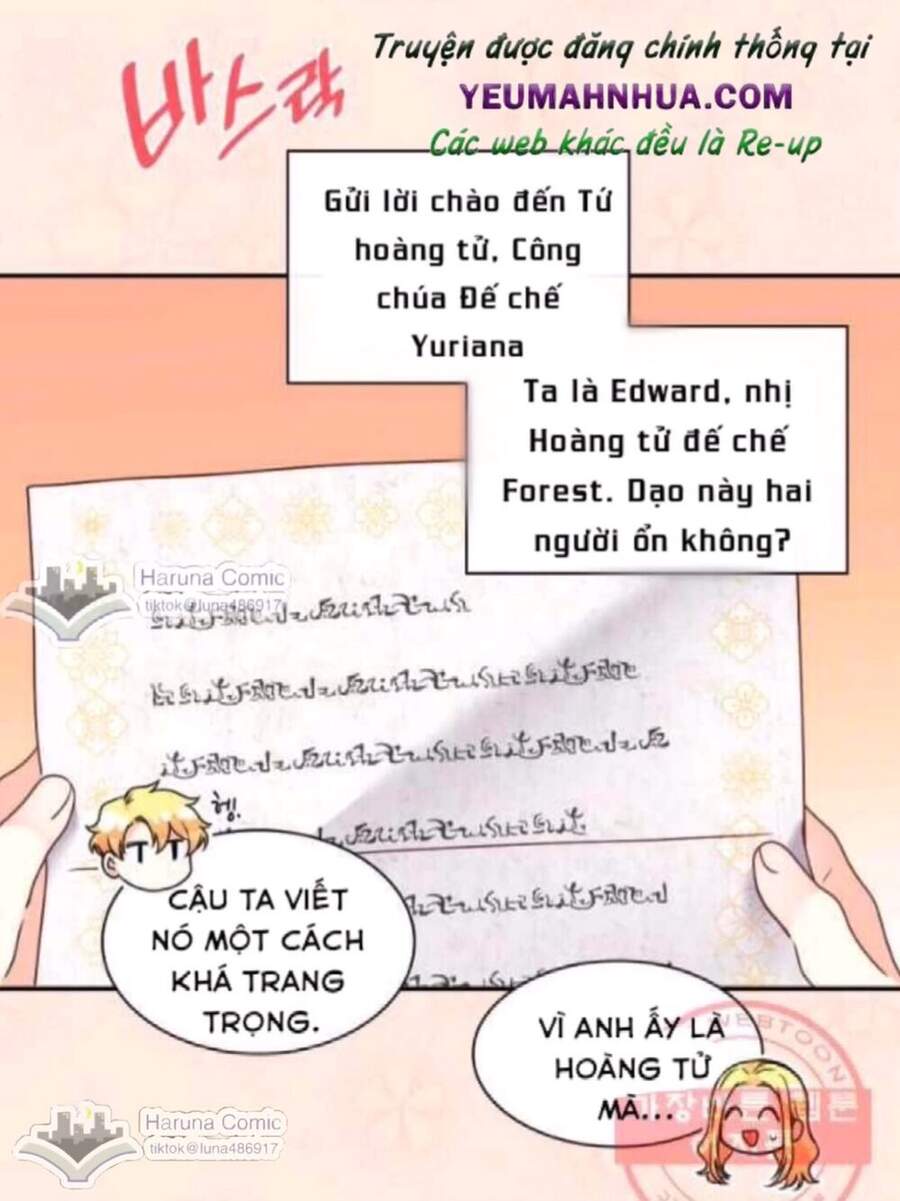 바스락
Truyện được đăng chính thống tại
YEUMAHNHUA.COM
Các web khác đều là Re-up
Gửi lời chào đến Tứ
hoàng tử, Công
chúa Đế chế
Yuriana
Ta là Edward, nhị
Hoàng tử đế chế
Forest. Dạo này hai
người ổn không?
Haruna Comic
tiktok@luna486917
헹!
CẬU TA VIẾT
NÓ MỘT CÁCH
KHÁ TRANG
TRỌNG.
VÌ ANH ẤY LÀ
HOÀNG TỬ
MÀ...
WEBTOON
Haruna Comic
tiktok@luna486917